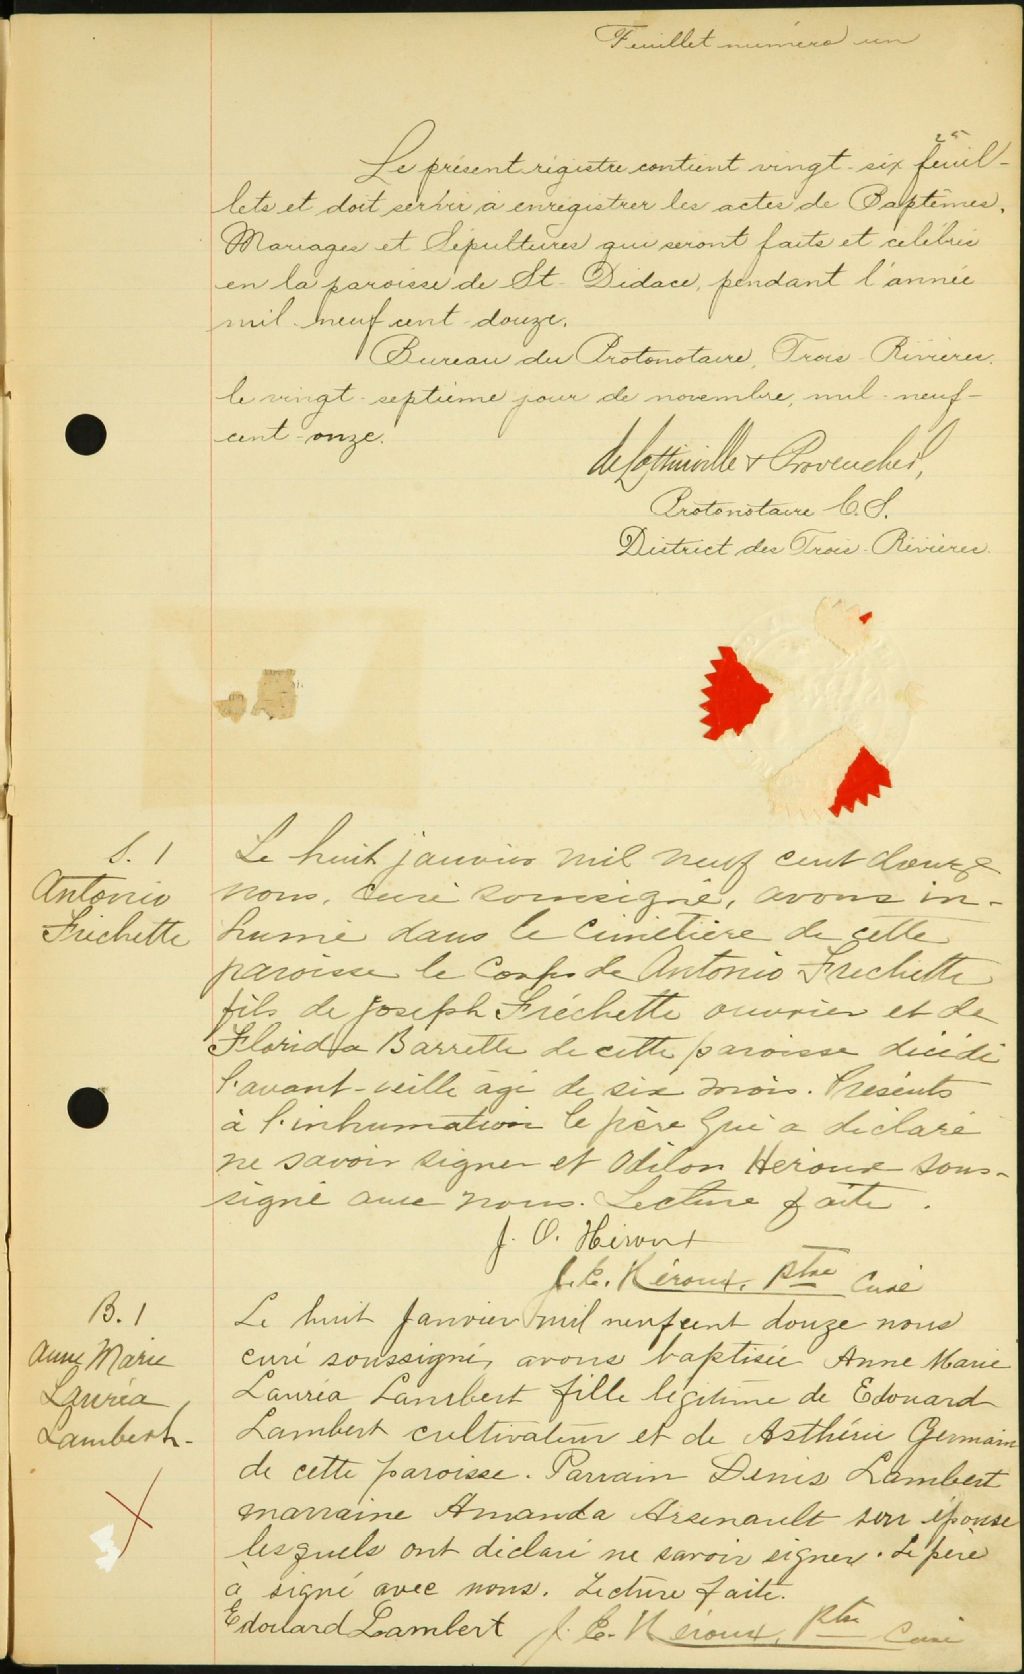 Feuillet numéro un
25
Le présent régistre contient vingt-six feuil-
lets et doit servir à enregistrer les actes de Baptêmes,
Mariages et Sépultures qui seront faits et célébrés
en la paroisse de St-Didace, pendant l'année
mil-neuf cent-douze.
Bureau du Protonotaire, Trois-Rivières,
le vingt-septième jour de novembre, mil-neuf-
cent-onze.
de Lottinville & Provencher,
Protonotaire C.S.
District des Trois-Rivières.
S. 1
Antonio
Fréchette
Le huit janvier mil neuf cent douze
nous, curé soussigné, avons in-
humé dans le cimetière de cette
paroisse le corps de Antonio Frechette
fils de Joseph Fréchette ouvrier et de
Florida Barrette de cette paroisse décédé
l'avant-veille âgé de six mois. Présents
à l'inhumation le père qui a déclaré
ne savoir signer et Odilon Heroux sous-
signé avec nous. Lecture faite.
J. O. Héroux
J. E. Héroux, Ptre Curé
B. 1
Anne Marie
Lauréa
Lambert-
Le huit Janvier mil neuf cent douze nous
curé soussigné, avons baptisée Anne Marie
Lauréa Lambert fille légitime de Edouard
Lambert cultivateur et de Asthérie Germain
de cette paroisse. Parrain Denis Lambert
marraine Amanda Arsenault son épouse
lesquels ont déclaré ne savoir signer. Le père
à signé avec nous. Lecture faite.
Edouard Lambert J. E. Héroux, Ptre Curé